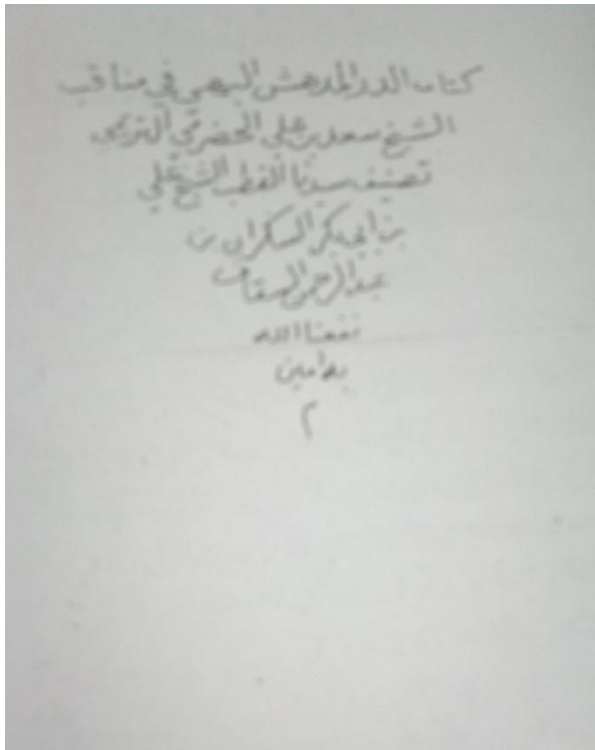 كتاب الدر المدهش البهي في مناقب
الشيخ سعد بن علي الحضرمي التريمي
تصنيف سيدنا القطب الشيخ علي
بن ابي بكر السكران بن
عبد الرحمن السقاف
نفعنا الله
به امين
م